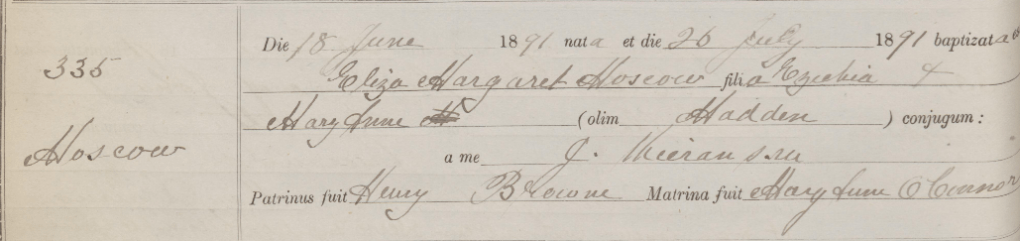 335
Moscow
Die 18 June 1891 nata et die 26 July 1891 baptizata e
Eliza Margaret Moscow filia Ezechia +
Mary Anne (olim Madden) conjugum:
a me J. Kieran
Patrinus fuit Henry Browne Matrina fuit Mary Anne O'Connor